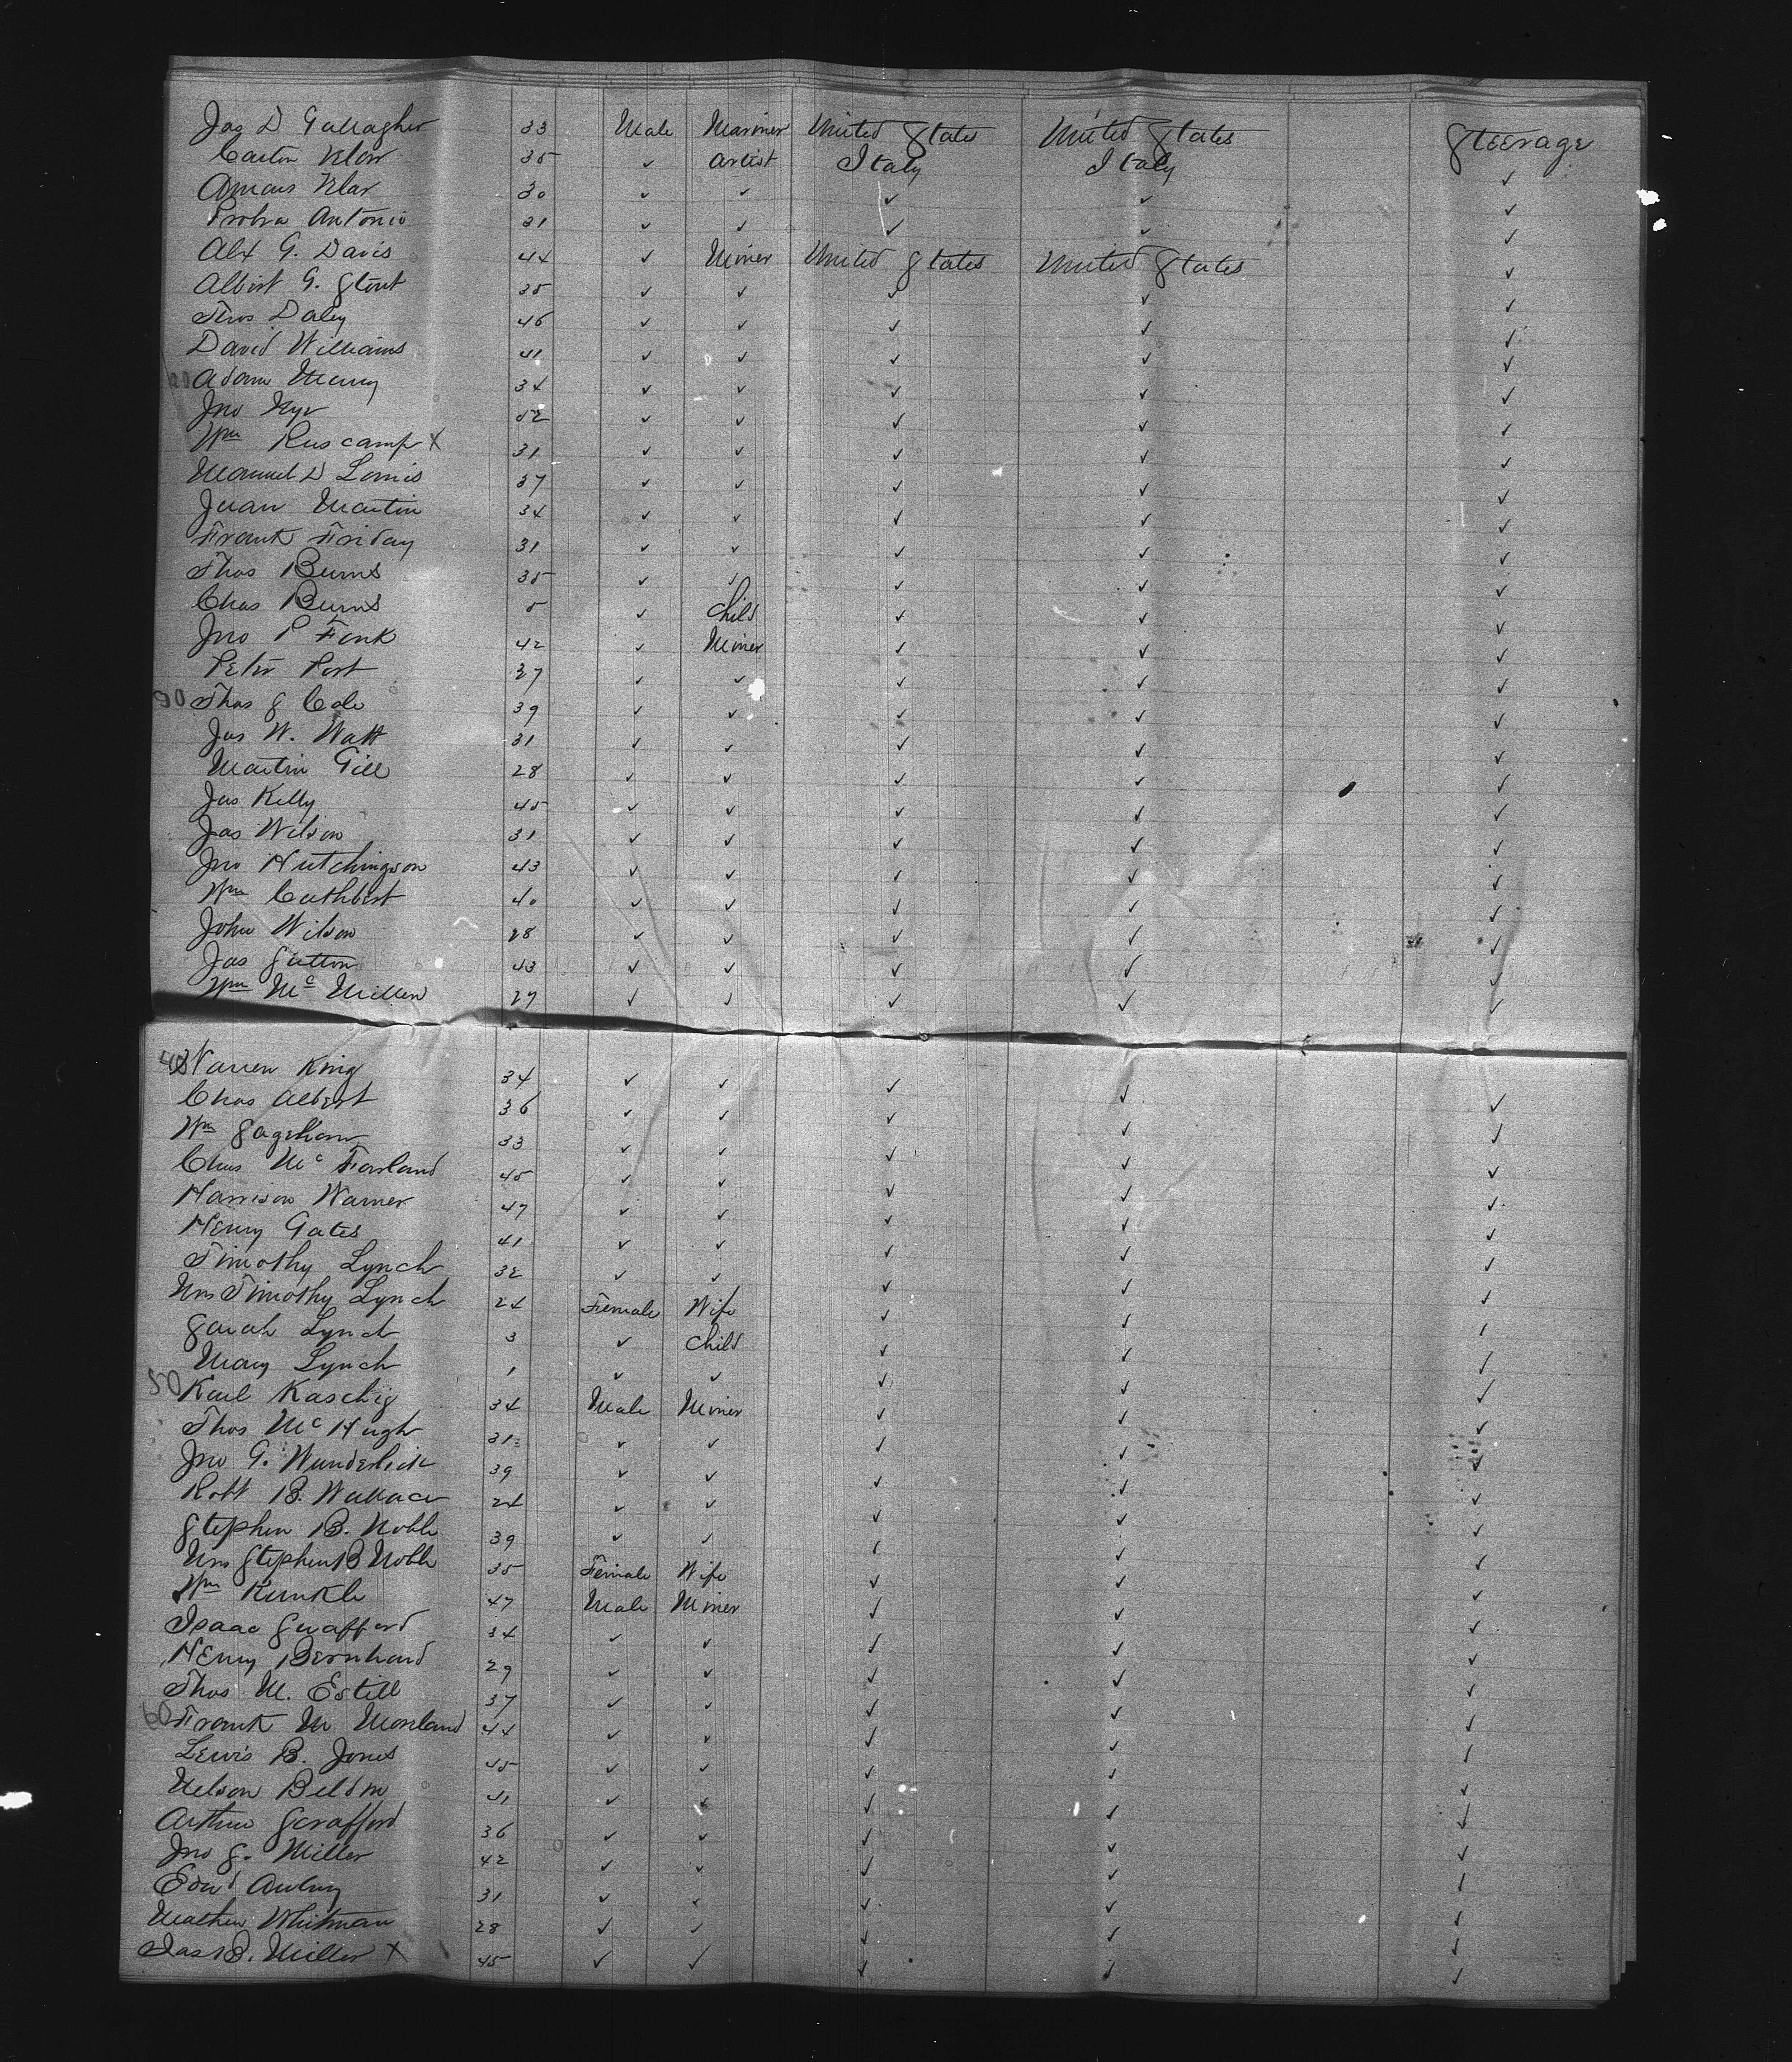 Jas D Gallagher 33 Male Mariner United States United States Steerage
Carton Klar 35 ✓ Artist Italy Italy ✓
Amaus Klar 30 ✓ ✓ ✓ ✓ ✓
Antonio 31 ✓ ✓ ✓ ✓ ✓
Alx G. Davis 44 ✓ Miner United States United States ✓
Albert G. Stout 35 ✓ ✓ ✓ ✓ ✓
Thos Daley 46 ✓ ✓ ✓ ✓ ✓
David Williams 41 ✓ ✓ ✓ ✓ ✓
20 Adam 34 ✓ ✓ ✓ ✓ ✓
Jno 52 ✓ ✓ ✓ ✓ ✓
Wm Ruscamp X 31 ✓ ✓ ✓ ✓ ✓
Manuel D Lomis 37 ✓ ✓ ✓ ✓ ✓
Juan Martin 34 ✓ ✓ ✓ ✓ ✓
Frank Friday 31 ✓ ✓ ✓ ✓ ✓
Thos Burns 35 ✓ ✓ ✓ ✓ ✓
Chas Burns 5 ✓ Child ✓ ✓ ✓
Jno P Fink 42 ✓ Miner ✓ ✓ ✓
Peter Port 37 ✓ ✓ ✓ ✓ ✓
30 Thos S Cole 39 ✓ ✓ ✓ ✓ ✓
Jas W. Watt 31 ✓ ✓ ✓ ✓ ✓
Martin Gill 28 ✓ ✓ ✓ ✓ ✓
Jas Kelly 45 ✓ ✓ ✓ ✓ ✓
Jas Wilson 31 ✓ ✓ ✓ ✓ ✓
Jno Hutchingson 43 ✓ ✓ ✓ ✓ ✓
Wm Cuthbert 40 ✓ ✓ ✓ ✓ ✓
John Wilson 28 ✓ ✓ ✓ ✓ ✓
Jas Sutton 43 ✓ ✓ ✓ ✓ ✓
Wm Mc Millen 27 ✓ ✓ ✓ ✓ ✓
40 Warren King 34 ✓ ✓ ✓ ✓ ✓
Chas Albert 36 ✓ ✓ ✓ ✓ ✓
Wm 33 ✓ ✓ ✓ ✓ ✓
Chas Mc Farland 45 ✓ ✓ ✓ ✓ ✓
Harrison Warner 47 ✓ ✓ ✓ ✓ ✓
Henry Gates 41 ✓ ✓ ✓ ✓ ✓
Timothy Lynch 32 ✓ ✓ ✓ ✓ ✓
Mrs Timothy Lynch 24 Female Wife ✓ ✓ ✓
Sarah Lynch 3 ✓ Child ✓ ✓ ✓
Mary Lynch 1 ✓ ✓ ✓ ✓ ✓
50 Karl Kaschig 34 Male Miner ✓ ✓ ✓
Thos Mc Hugh 31 ✓ ✓ ✓ ✓ ✓
Jno G. Wunderlich 39 ✓ ✓ ✓ ✓ ✓
Robt B. Wallace 24 ✓ ✓ ✓ ✓ ✓
Stephen B. Noble 39 ✓ ✓ ✓ ✓ ✓
Mrs Stephen B Noble 35 Female Wife ✓ ✓ ✓
Wm Kunkle 47 Male Miner ✓ ✓ ✓
Isaac 34 ✓ ✓ ✓ ✓ ✓
Henry Bernhard 29 ✓ ✓ ✓ ✓ ✓
Thos M. Estill 37 ✓ ✓ ✓ ✓ ✓
60 Frank M Morland 44 ✓ ✓ ✓ ✓ ✓
Lewis B. Jones 45 ✓ ✓ ✓ ✓ ✓
Nelson Beldin 41 ✓ ✓ ✓ ✓ ✓
Arthur Scrafford 36 ✓ ✓ ✓ ✓ ✓
Jno S. Miller 42 ✓ ✓ ✓ ✓ ✓
Edwd 31 ✓ ✓ ✓ ✓ ✓
Mathew Whitman 28 ✓ ✓ ✓ ✓ ✓
Jas B. Miller X 45 ✓ ✓ ✓ ✓ ✓